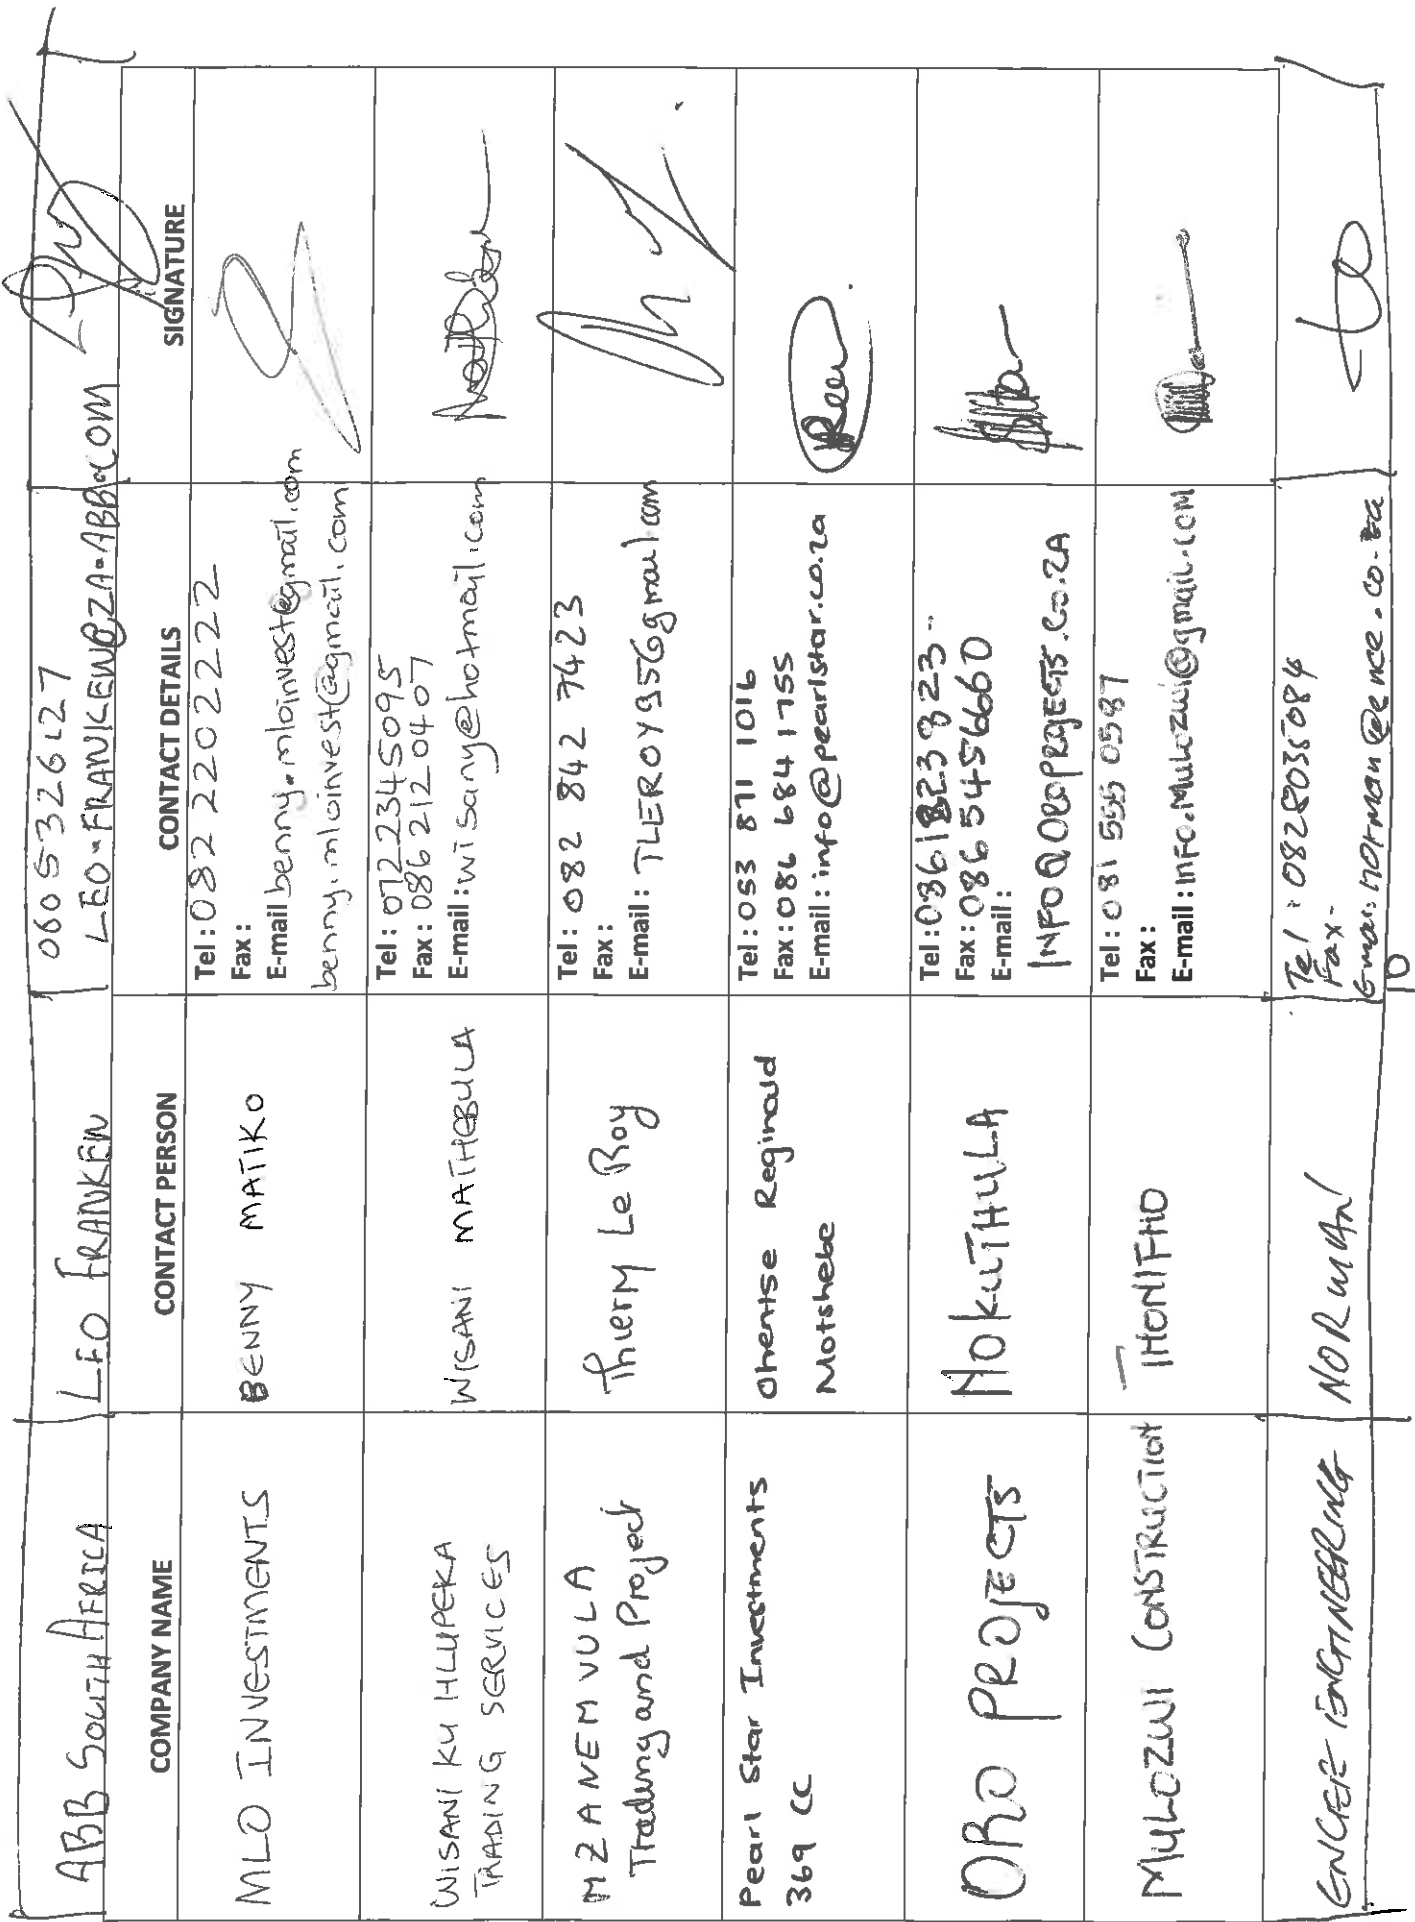 ABB SOUTH AFRICA
LEO FRANKEN
0605326127
LEO.FRANKEN@ZA.ABB.COM
COMPANY NAME
CONTACT PERSON
CONTACT DETAILS
SIGNATURE
MLO INVESTMENTS
BENNY MATIKO
Tel : 082 2202222
Fax :
E-mail benny.mloinvest@gmail.com
benny.mloinvest@gmail.com
WISANI KU HLUPEKA
TRADING SERVICES
WISANI MATHEBULA
Tel : 0722345095
Fax : 086 212 0407
E-mail : wisany@hotmail.com
MZANEMVULA
Trading and Project
Thierry Le Roy
Tel : 082 842 7423
Fax :
E-mail : TLEROY956gmail.com
Pearl Star Investments
369 CC
Ohentse Reginald
Motshebe
Tel : 053 871 1016
Fax : 086 684 1755
E-mail : info@pearlstar.co.za
ORO PROJECTS
NOKUTHULA
Tel : 0861823823
Fax : 0865456660
E-mail :
INFO@OROPROJECTS.CO.ZA
MULOZWI CONSTRUCTION
THONIFHO
Tel : 081 555 0587
Fax :
E-mail : INFO.Mulozwi@gmail.com
ENGINEERING
NORMAN
Tel : 0828035084
Fax -